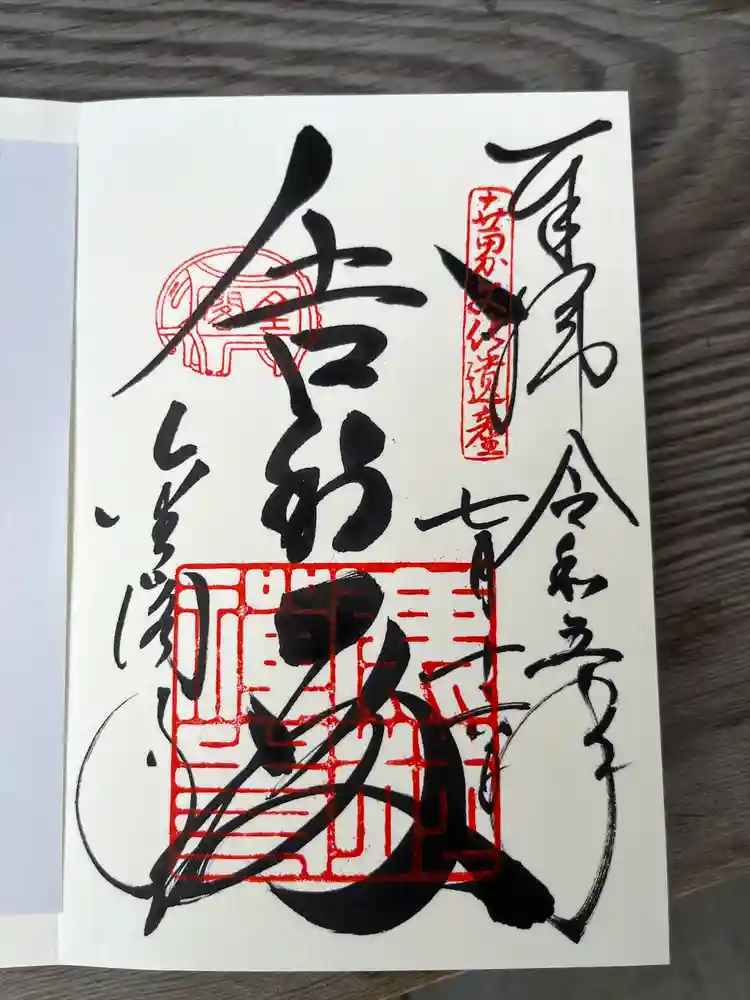 奉拝
令和五年
世界文化遺産
七月十六日
舎利殿
金閣
金閣寺